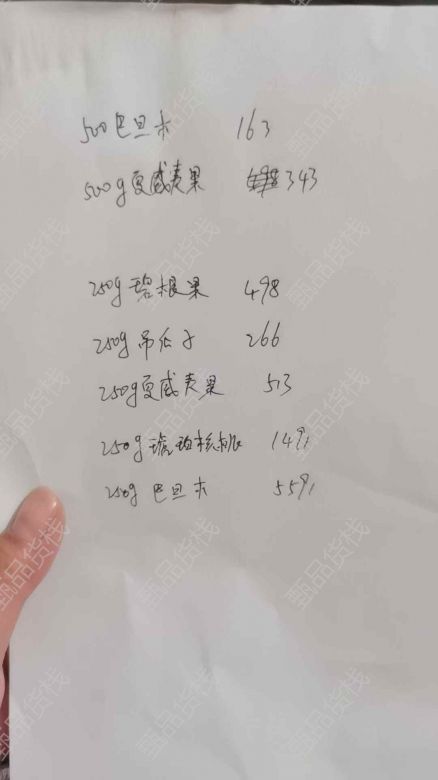 500巴旦木 163
500g夏威夷果 343
250g碧根果 498
250g吊瓜子 266
250g夏威夷果 513
250g琥珀核桃 1491
250g巴旦木 5591
甄品货栈